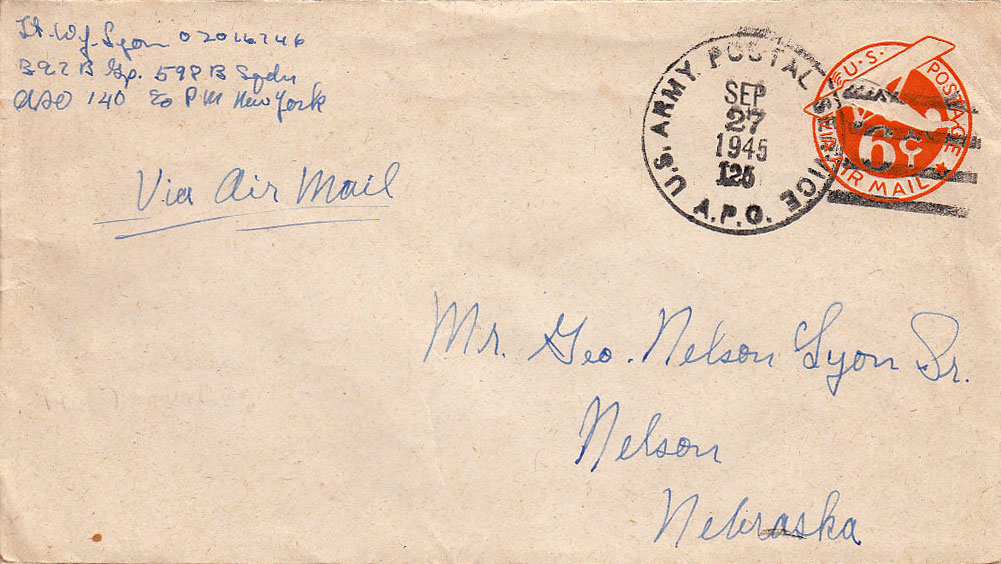 Lt. W.J. Lyon 02016746
397 B Gp. 598 B Sqdn
APO 140 c/o PM New York
Via Air Mail
U.S. ARMY POSTAL SERVICE
SEP
27
1945
125
A.P.O.
U.S. POSTAGE
6¢
VIA AIR MAIL
Mr. Geo. Nelson Lyon Sr.
Nelson
Nebraska